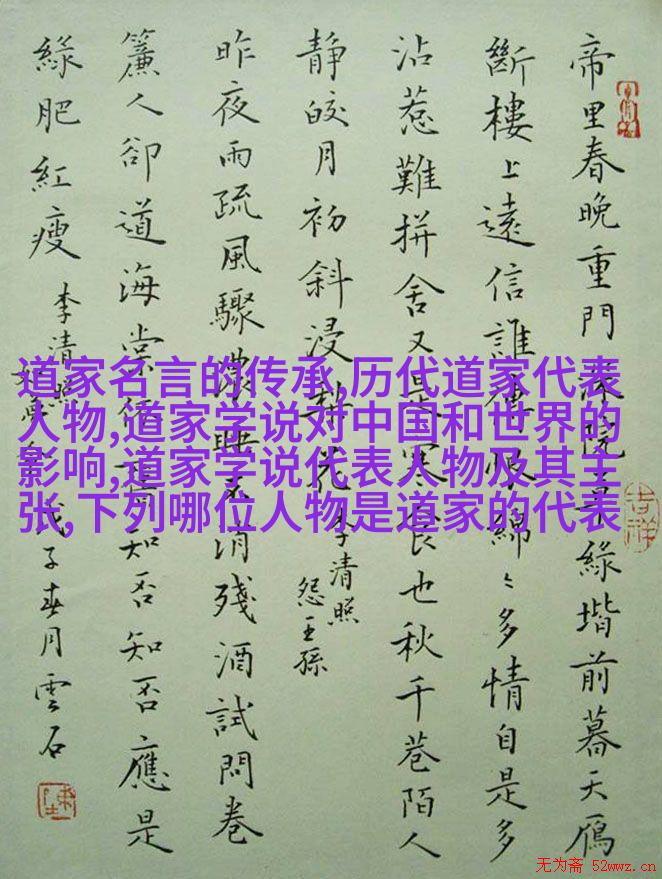 帝里春晚重門深院草綠堦前暮天鴈
斷樓上遠信誰傳恨綿〻多情自是多
沾惹難拚舍又是寒食也秋千巷陌人
靜皎月初斜浸梨花 李清照
怨王孫
昨夜雨疏風驟濃睡不消殘酒試問卷
簾人卻道海棠依舊知否知否應是
綠肥紅瘦 李清照
如夢令 戊子春月雲石
道家名言的传承,历代道家代表
人物,道家学说对中国和世界的
影响,道家学说代表人物及其主
张,下列哪位人物是道家的代表
吉祥
无为斋 52wwz.cn